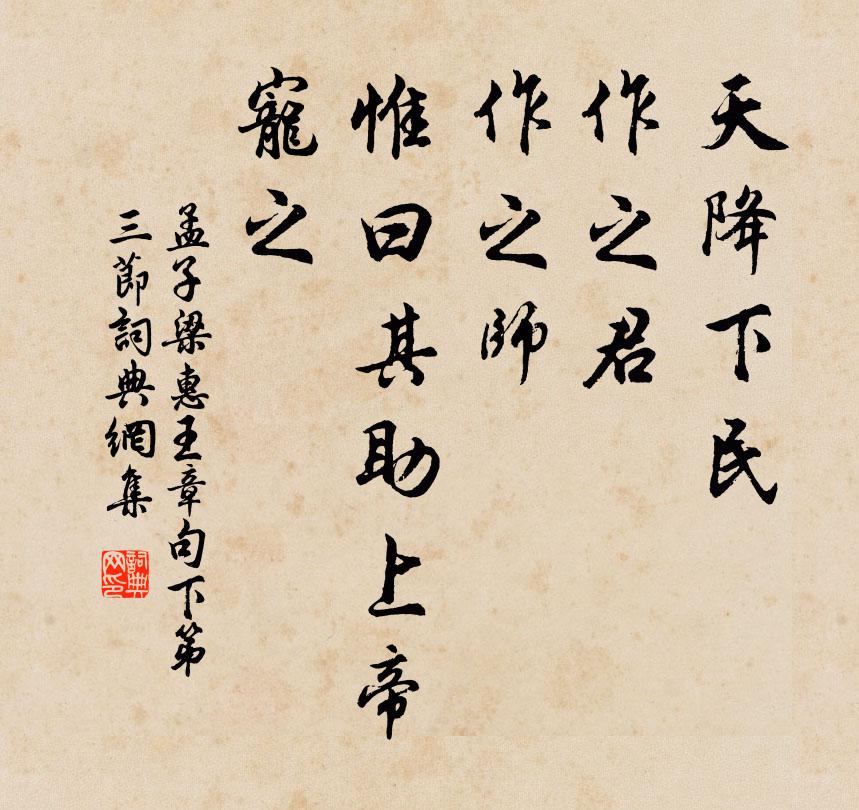 天降下民
作之君
作之師
惟曰其助上帝
寵之
孟子梁惠王章句下第
三節詞典網集
詞典
网印